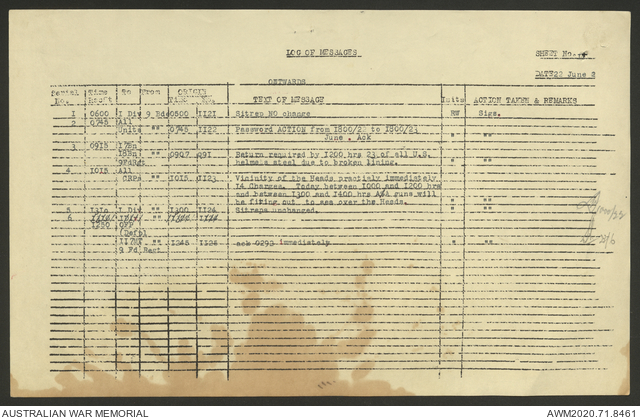 LOG OF MESSAGES
SHEET No.
DATE 22 June
ONTWARDS
Serial No. Time To From ORIGIN Time No. TEXT OF MESSAGE Inits ACTION TAKEN & REMARKS
1 0600 I Div 9 Bde 0500 II21 Sitrep NO change RW Sigs.
2 0745 All
Units "" 0745 II22 Password ACTION from I800/22 to I800/23 " ""
June . Ack
3 0915 I7Bn
0907 Q91 Return required by I200 hrs 23 of all U.S. " ""
helmets steel due to broken lining.
4 I015 All
"" I015 II23 Vicinity of the Heads practisly immediately " ""
I4 Charges. Today between I000 and I200 hrs
and between I300 and I400 hrs A&A guns will
be firing out to sea over the Heads.
5 I310 I Div "" I300 II26 Sitreps unchanged. " ""
6
I250
"" I245 II26 ack 0293 immediately. " ""
9 Fd Regt
AUSTRALIAN WAR MEMORIAL
AWM2020.71.8461